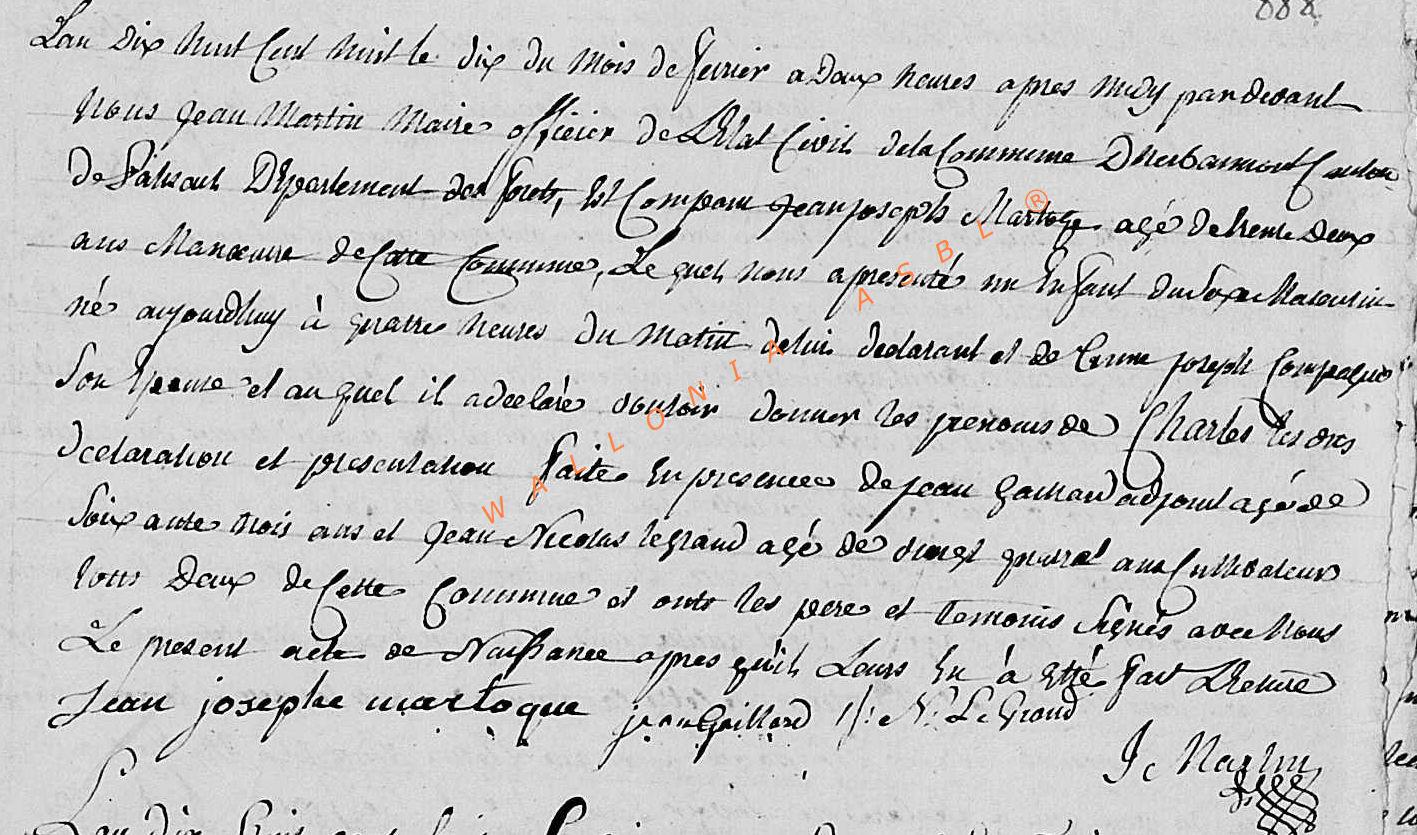 888
L'an dix huit Cent huit le dix du mois de fevrier a Deux heures apres midy pardevant
Nous Jean Martin Maire officier de L'Etat Civil dela Commune D'herbaumont Canton
De Paliseul Département des forets, Est Comparu Jean joseph Martoqe agé de trente Deux
ans Manœuvre de Cette Commune, Le quel nous a presenté un Enfant du Sexe Masculin
né aujourdhuy à quatre heures du Matin de lui declarant et de joseph
Son Epouse et au quel il a declaré vouloir donner les prenoms de Charles les dres
declaration et presentation faite En presence de jean Gaillard adjoint agé de
Soixante trois ans et Jean Nicolas legrand agé de vingt quatre ans Cultivateur
totts Deux de Cette Commune et onts les pere et temoins Signés avec Nous
Le present acte de Naissance apres quil Leurs En à Etté fait Lecture
Jean josephe martoque jean Gaillard J: N: Le Grand
J Martin
L'an dix
WALLONIA ASBL ®